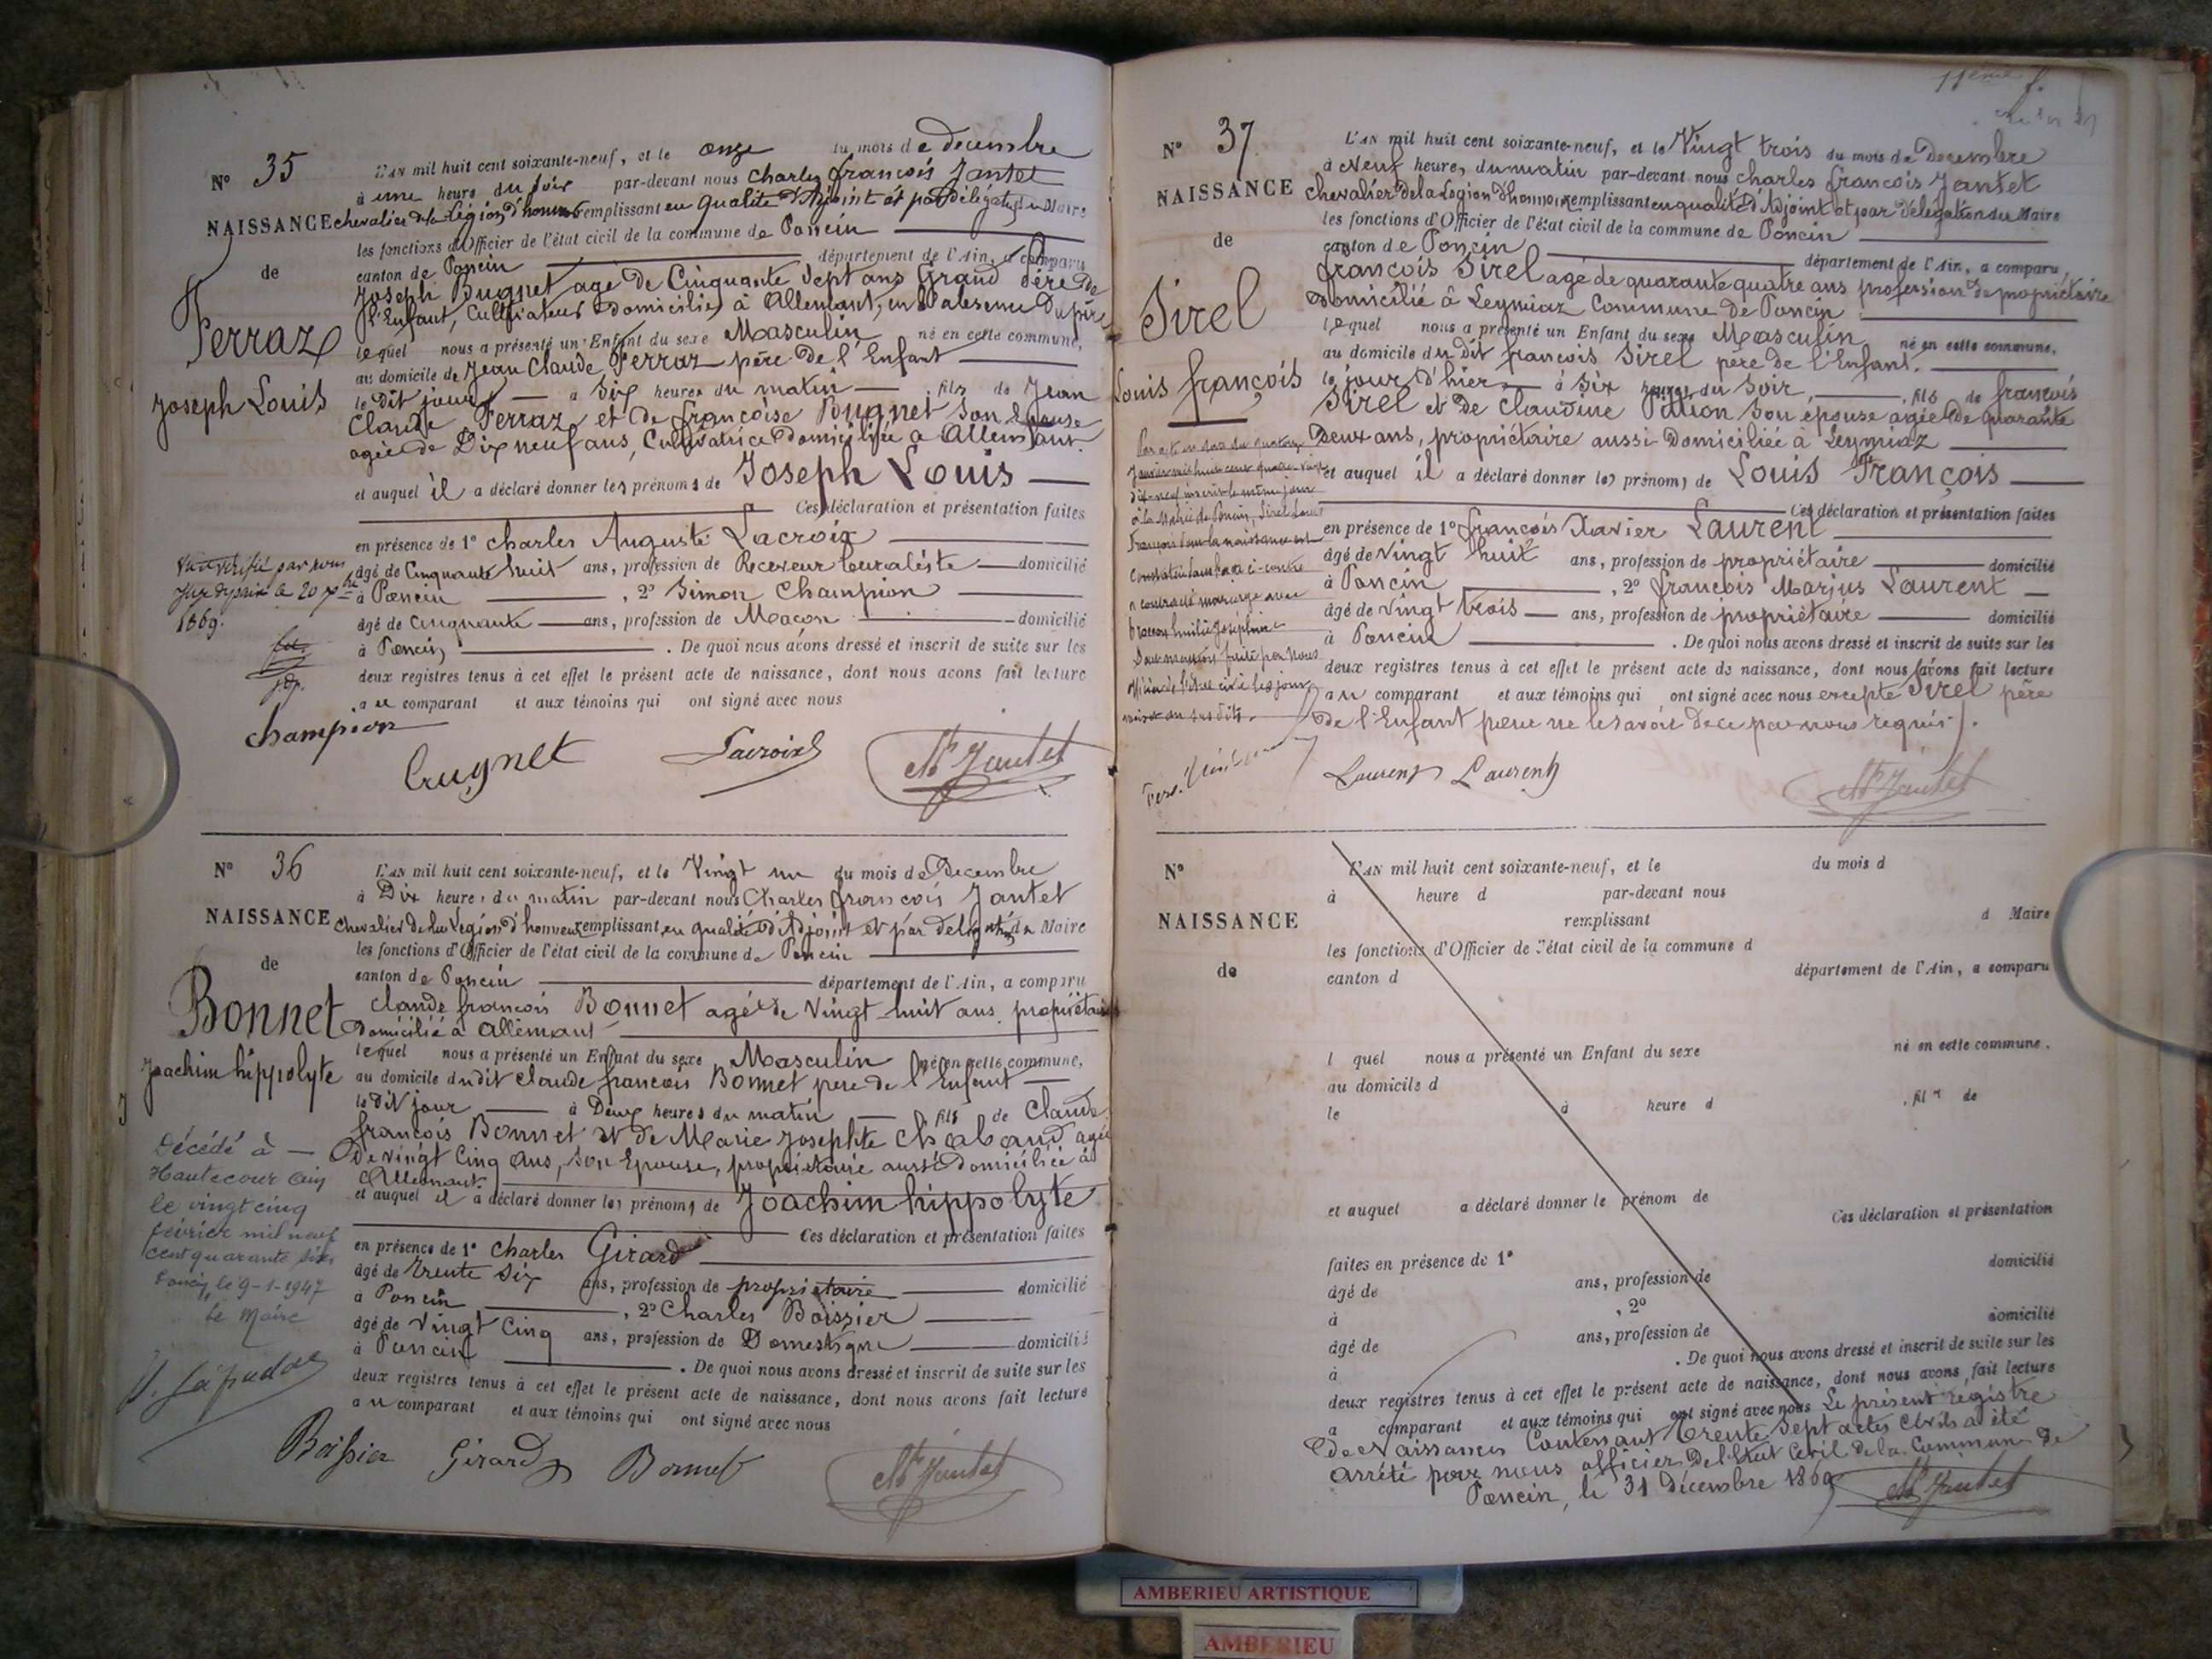 N° 35
L'AN mil huit cent soixante-neuf, et le onze du mois de decembre
à une heure du soir par-devant nous charles françois Jantet
NAISSANCE chevalier de la Légion d'honneur remplissant en qualité d'Adjoint et par délégation du Maire
les fonctions d'Officier de l'état civil de la commune de Poncin
de
canton de Poncin département de l'Ain, a comparu
Joseph Bugnet agé de Cinquante Sept ans Grand Père de
l'Enfant, Cultivateur domicilié à Allement, en l'absence du père
Ferraz
lequel nous a présenté un Enfant du sexe Masculin né en cette commune,
au domicile de Jean Claude Ferraz père de l'Enfant
Joseph Louis
le dit jour à Six heures du matin, fils de Jean
Claude Ferraz et de françoise Bugnet Son Epouse
agée de Dix neuf ans, Cultivatrice domiciliée a Allement.
et auquel il a déclaré donner les prénoms de Joseph Louis
Ces déclaration et présentation faites
en présence de 1° charles Auguste Lacroix
âgé de Cinquante huit ans, profession de Receveur buraliste domicilié
à Poncin, 2° Simon Champion
âgé de Cinquante ans, profession de Maçon domicilié
à Poncin, . De quoi nous avons dressé et inscrit de suite sur les
deux registres tenus à cet effet le présent acte de naissance, dont nous avons fait lecture
au comparant et aux témoins qui ont signé avec nous
Vu et vérifié par nous
Juge de paix le 20 Xbre
1869.
champion
Bugnet
Lacroix
Ch Jantet
N° 36
L'AN mil huit cent soixante-neuf, et le Vingt un du mois de Decembre
à Dix heures du matin par-devant nous Charles françois Jantet
NAISSANCE chevalier de la Légion d'honneur remplissant en qualité d'Adjoint et par délégation du Maire
les fonctions d'Officier de l'état civil de la commune de Poncin
de
canton de Poncin département de l'Ain, a comparu
Bonnet
Claude françois Bonnet agé de Vingt huit ans propriétaire
Domicilié à Allemant
lequel nous a présenté un Enfant du sexe Masculin né en cette commune,
Joachim hippolyte
au domicile dudit Claude françois Bonnet père de l'Enfant
le dit jour à Deux heures du matin fils de Claude
françois Bonnet et de Marie Josephte Chaband agée
De vingt Cinq ans, son Epouse, propriétaire aussi Domiciliée à
Allemant
et auquel il a déclaré donner les prénoms de Joachim hippolyte
Ces déclaration et présentation faites
en présence de 1° Charles Girard
âgé de trente Six ans, profession de propriétaire domicilié
à Poncin, 2° Charles Boissier
âgé de Vingt Cinq ans, profession de Domestique domicilié
à Poncin . De quoi nous avons dressé et inscrit de suite sur les
deux registres tenus à cet effet le présent acte de naissance, dont nous avons fait lecture
au comparant et aux témoins qui ont signé avec nous
Décédé à
Hautecour Ain
le vingt cinq
février mil neuf
cent quarante six
Poncin, le 9-1-1947
le Maire
Boissier
Girard
Bonnet
Ch Jantet
N° 37
L'AN mil huit cent soixante-neuf, et le Vingt trois du mois de Decembre
à Neuf heures, du matin par-devant nous charles françois Jantet
NAISSANCE chevalier de la Légion d'honneur remplissant en qualité d'Adjoint et par délégation du Maire
les fonctions d'Officier de l'état civil de la commune de Poncin
de
canton de Poncin département de l'Ain, a comparu
françois Sirel agé de quarante quatre ans profession de propriétaire
domicilié à Leymiaz Commune de Poncin
Sirel
lequel nous a présenté un Enfant du sexe Masculin né en cette commune,
au domicile du dit françois Sirel père de l'Enfant.
Louis françois
le jour d'hier à Six heures du Soir, fils de françois
Sirel et de Claudine Pation Son épouse agée de quarante
deux ans, propriétaire aussi Domiciliée à Leymiaz
et auquel il a déclaré donner les prénoms de Louis François
Ces déclaration et présentation faites
en présence de 1° françois Xavier Laurent
âgé de Vingt huit ans, profession de propriétaire domicilié
à Poncin, 2° françois Marius Laurent
âgé de Vingt trois ans, profession de propriétaire domicilié
à Poncin . De quoi nous avons dressé et inscrit de suite sur les
deux registres tenus à cet effet le présent acte de naissance, dont nous avons fait lecture
au comparant et aux témoins qui ont signé avec nous excepté Sirel père
de l'Enfant pour ne le savoir de ce par nous requis.
Par acte en date du quatorze
Janvier mil huit cent quatre-vingt
dix-neuf inscrit le même jour
à la Mairie de Poncin, Sirel Louis
François dont la naissance est
constatée dans l'acte ci-contre
a contracté mariage avec
Emilie Joséphine
Dont mention faite par Nous
Officier de l'état civil les jour
mois et an susdits.
Laurent Laurent
Ch Jantet
N°
L'AN mil huit cent soixante-neuf, et le du mois d
à heure d par-devant nous
NAISSANCE
remplissant d Maire
les fonctions d'Officier de l'état civil de la commune d
de
canton d département de l'Ain, a comparu
l quel nous a présenté un Enfant du sexe né en cette commune,
au domicile d
le à heure d , fil de
et auquel a déclaré donner le prénom de
Ces déclaration et présentation
faites en présence de 1° domicilié
âgé de ans, profession de
à , 2° domicilié
âgé de ans, profession de
à . De quoi nous avons dressé et inscrit de suite sur les
deux registres tenus à cet effet le présent acte de naissance, dont nous avons fait lecture
a comparant et aux témoins qui ont signé avec nous Le présent registre
De Naissances Contenant trente Sept actes Civils a été
arrêté par nous officier de l'Etat Civil de la Commune de
Poncin, le 31 Décembre 1869
Ch Jantet
AMBERIEU ARTISTIQUE
AMBERIEU